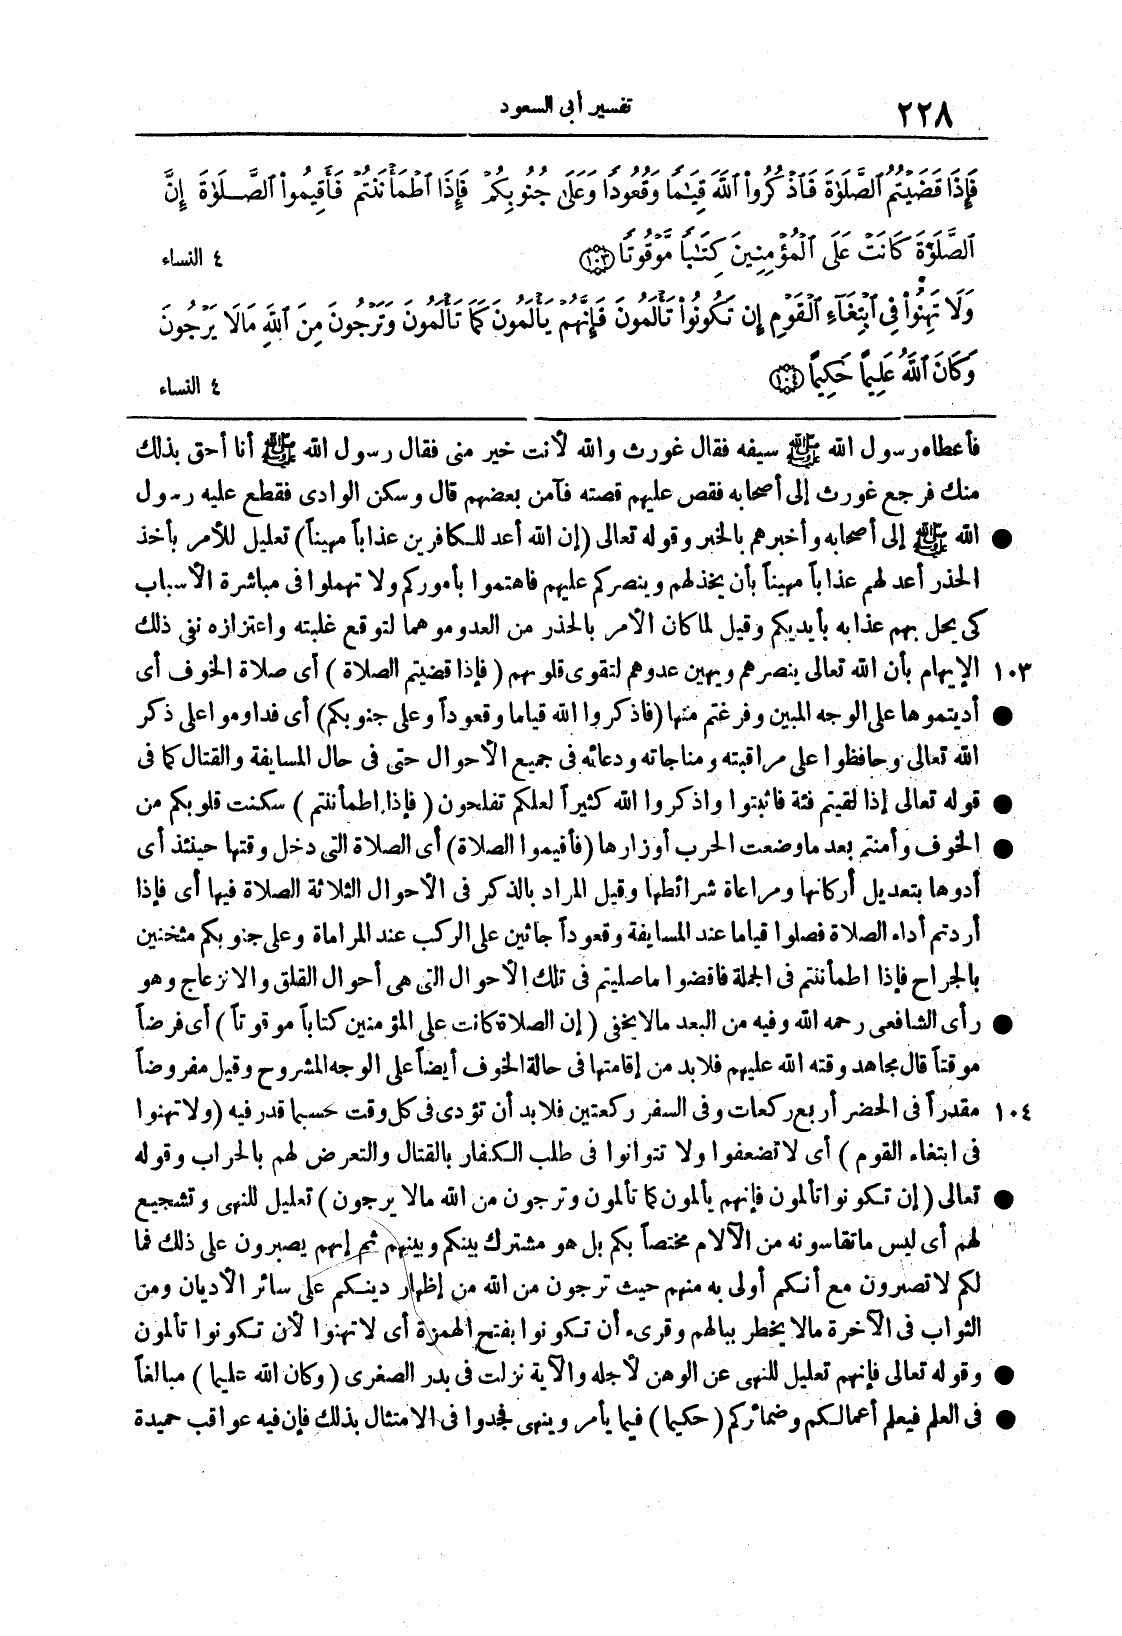 ٢٢٨ تفسير أبى السعود
فَإِذَا قَضَيْتُمُ ٱلصَّلَوٰةَ فَٱذْكُرُوا۟ ٱللَّهَ قِيَـٰمًا وَقُعُودًا وَعَلَىٰ جُنُوبِكُمْ فَإِذَا ٱطْمَأْنَنتُمْ فَأَقِيمُوا۟ ٱلصَّلَوٰةَ إِنَّ
ٱلصَّلَوٰةَ كَانَتْ عَلَى ٱلْمُؤْمِنِينَ كِتَـٰبًا مَّوْقُوتًا ١٠٣ ٤ النساء
وَلَا تَهِنُوا۟ فِى ٱبْتِغَآءِ ٱلْقَوْمِ إِن تَكُونُوا۟ تَأْلَمُونَ فَإِنَّهُمْ يَأْلَمُونَ كَمَا تَأْلَمُونَ وَتَرْجُونَ مِنَ ٱللَّهِ مَالَا يَرْجُونَ
وَكَانَ ٱللَّهُ عَلِيمًا حَكِيمًا ١٠٤ ٤ النساء
فأعطاه رسول الله ﷺ سيفه فقال غورث والله لأنت خير منى فقال رسول الله ﷺ أنا أحق بذلك
منك فرجع غورث إلى أصحابه فقص عليهم قصته فآمن بعضهم قال وسكن الوادى فقطع عليه رسول
● الله ﷺ إلى أصحابه وأخبرهم بالخبر وقوله تعالى (إن الله أعد للكافرين عذاباً مهيناً) تعليل للأمر بأخذ
الحذر أعد لهم عذاباً مهيناً بأن يخذلهم وينصركم عليهم فاهتموا بأموركم ولا تهملوا فى مباشرة الأسباب
كى يحل بهم عذابه بأيديكم وقيل لما كان الأمر بالحذر من العدو موهما لتوقع غلبته واعتزازه نفى ذلك
١٠٣ الإيهام بأن الله تعالى ينصرهم ويهين عدوهم لتقوى قلوبهم ( فإذا قضيتم الصلاة ) أى صلاة الخوف أى
● أديتموها على الوجه المبين وفرغتم منها (فاذكروا الله قياما وقعوداً وعلى جنوبكم) أى فداوموا على ذكر
الله تعالى وحافظوا على مراقبته ومناجاته ودعائه فى جميع الأحوال حتى فى حال المسايفة والقتال كما فى
● قوله تعالى إذا لقيتم فئة فاثبتوا واذكروا الله كثيراً لعلكم تفلحون ( فإذا اطمأننتم ) سكنت قلوبكم من
● الخوف وأمنتم بعد ما وضعت الحرب أوزارها (فأقيموا الصلاة) أى الصلاة التى دخل وقتها حينئذ أى
أدوها بتعديل أركانها ومراعاة شرائطها وقيل المراد بالذكر فى الأحوال الثلاثة الصلاة فيها أى فإذا
أردتم أداء الصلاة فصلوا قياما عند المسايفة وقعوداً جاثين على الركب عند المراماة وعلى جنوبكم مثخنين
بالجراح فإذا اطمأننتم فى الجملة فاقضوا ما صليتم فى تلك الأحوال التى هى أحوال القلق والانزعاج وهو
● رأى الشافعى رحمه الله وفيه من البعد مالا يخفى ( إن الصلاة كانت على المؤمنين كتاباً موقوتاً ) أى فرضاً
موقتاً قال مجاهد وقته الله عليهم فلابد من إقامتها فى حالة الخوف أيضاً على الوجه المشروح وقيل مفروضاً
١٠٤ مقدراً فى الحضر أربع ركعات وفى السفر ركعتين فلابد أن تؤدى فى كل وقت حسبما قدر فيه (ولا تهنوا
فى ابتغاء القوم ) أى لا تضعفوا ولا تتوانوا فى طلب الكفار بالقتال والتعرض لهم بالحراب وقوله
● تعالى ( إن تكونوا تألمون فإنهم يألمون كما تألمون وترجون من الله مالا يرجون ) تعليل للنهى وتشجيع
لهم أى ليس ما تقاسونه من الآلام مختصاً بكم بل هو مشترك بينكم وبينهم ثم إنهم يصبرون على ذلك فما
لكم لا تصبرون مع أنكم أولى به منهم حيث ترجون من الله من إظهار دينكم على سائر الأديان ومن
الثواب فى الآخرة مالا يخطر ببالهم وقرىء أن تكونوا بفتح الهمزة أى لا تهنوا لأن تكونوا تألمون
● وقوله تعالى فإنهم تعليل للنهى عن الوهن لأجله والآية نزلت فى بدر الصغرى ( وكان الله عليما ) مبالغاً
● فى العلم فيعلم أعمالكم وضمائركم ( حكيما ) فيما يأمر وينهى فجدوا فى الامتثال بذلك فإن فيه عواقب حميدة